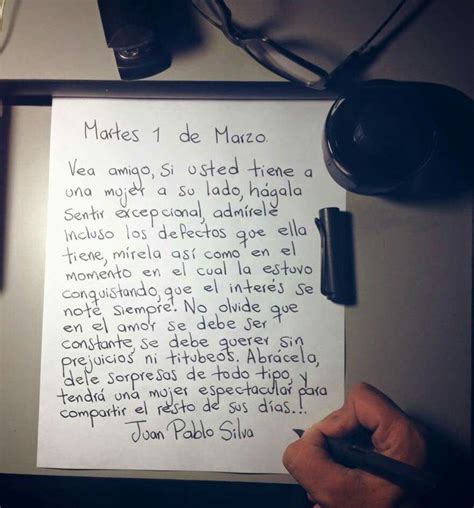 Martes 1 de Marzo.
Vea amigo, si usted tiene a
una mujer a su lado, hágala
sentir excepcional, admírele
incluso los defectos que ella
tiene, mírela así como en el
momento en el cual la estuvo
conquistando, que el interés se
note siempre. No olvide que
en el amor se debe ser
constante, se debe querer sin
prejuicios ni titubeos. Abrácela,
dele sorpresas de todo tipo, y
tendrá una mujer espectacular para
compartir el resto de sus días...!
Juan Pablo Silva